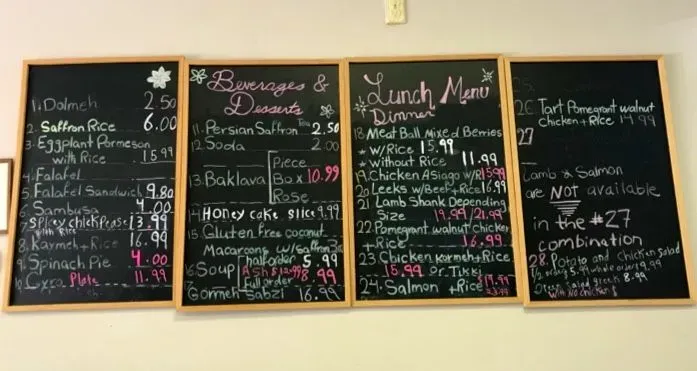 1. Dolmeh 2.50
2. Saffron Rice 6.00
3. Eggplant Parmeson
with Rice 15.99
4. Falafel
5. Falafel Sandwich 9.80
6. Sambusa 4.00
7 Spicy chick Pease 13.99
with Rice
8. Kaymeh + Rice 16.99
9. Spinach Pie 4.00
10. Gyro Plate 11.99
Beverages &
Desserts
11. Persian Saffron Tea 2.50
12. Soda 2.00
13. Baklava Piece
Box 10.99
Rose
14 Honey cake slice 9.99
15 Gluten free coconut
Macaroons w/saffron
16 Soup half order 5.99
Full order 8.99
17
Gormeh Sabzi 16.99
Lunch Menu
Dinner
18 Meat Ball Mixed Berries
* w/Rice 15.99
* without Rice 11.99
19. Chicken Asiago w/R 15.99
20 Leeks w/Beef+Rice 16.99
21 Lamb Shank Depending
Size 19.99/21.99
22 Pomegrant walnut chicken
+Rice 16.99
23 Chicken kormeh+Rice
15.99 Or Tikki
24. Salmon +Rice $19.99
23.99
25.
26 Tart Pomegrant walnut
Chicken + Rice 14.99
27
Lamb & Salmon
are NOT available
in the #27
combination
28. Potato and chicken Salad
1/2 order 5.99 whole order 9.99
Green Salad greek 8.99
with No chicken